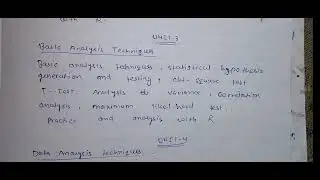 with R.
UNIT-3
Basic Analysis Techniques
Basic analysis techniques, statistical hypothesis
generation and testing, chi-square test
T-Test, Analysis of variance, Correlation
analysis, maximum likelihood test
Practice and analysis with R
UNIT-4
Data Analysis techniques